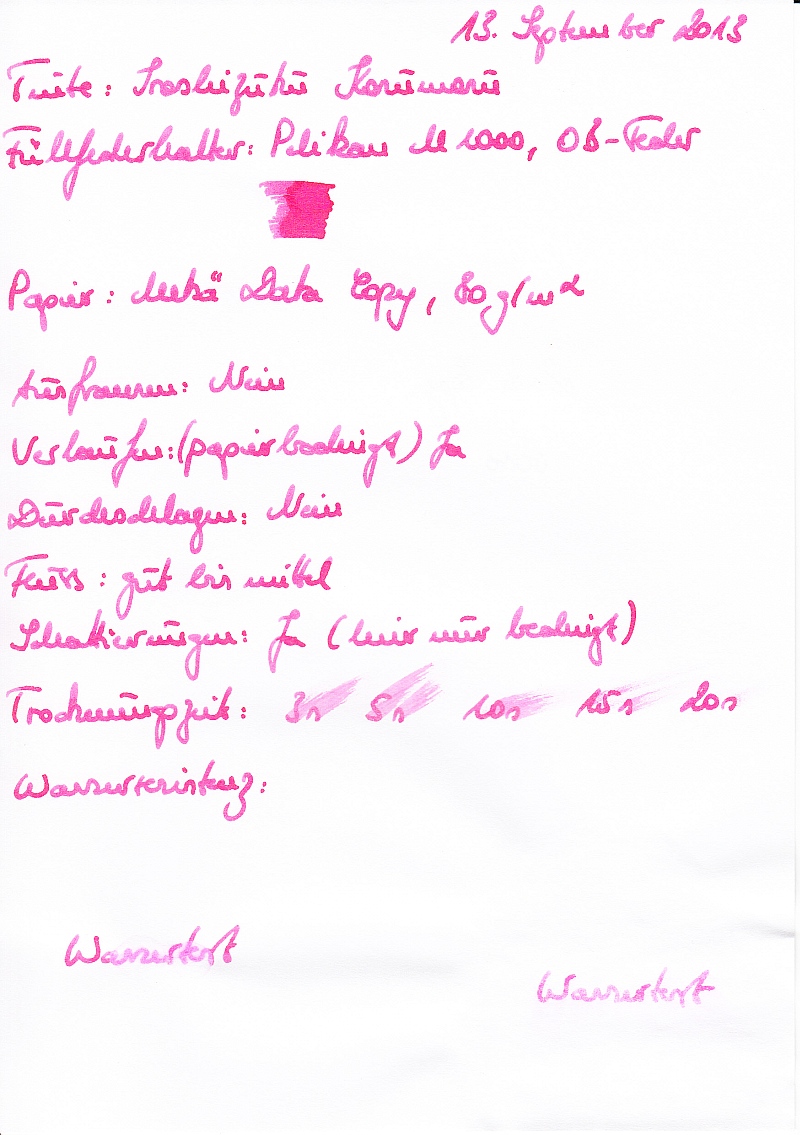 13. September 2013
Tinte: Iroshizuku Kosumosu
Füllfederhalter: Pelikan M 1000, OB-Feder
Papier: "Mekä" Data Copy, 80 g/m²
Ausfransen: Nein
Verlaufen: (papierbedingt) Ja
Durchschlagen: Nein
Fluss: gut bis mittel
Schattierungen: Ja (hier nur bedingt)
Trocknungszeit: 3s 5s 10s 15s 20s
Wasserresistenz:
Wassertest
Wassertest